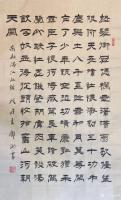 怒髮衝冠憑闌處瀟瀟雨歇抬望
眼仰天長嘯壯懷激烈三十功名
塵與土八千里路雲和月莫等閒
白了少年頭空悲切靖康恥猶未
雪臣子恨何時滅駕長車踏破賀
蘭山缺壯志飢餐胡虜肉笑談渴
飲匈奴血待從頭收拾舊山河朝
天闕
岳飛滿江紅